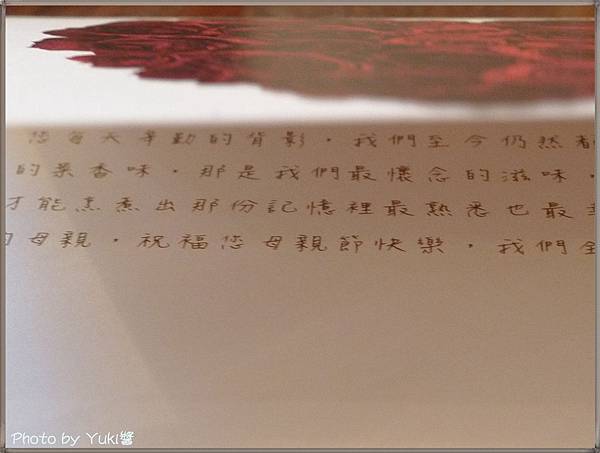 您每天辛勤的背影，我們至今仍然都
的菜香味，那是我們最懷念的滋味，
才能烹煮出那份記憶裡最熟悉也最
的母親，祝福您母親節快樂，我們全
Photo by Yuki醬